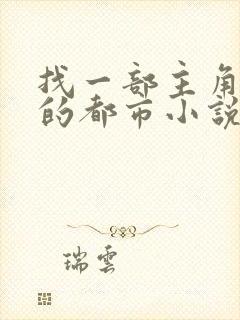 找一部主角
的都市小說
瑞雲